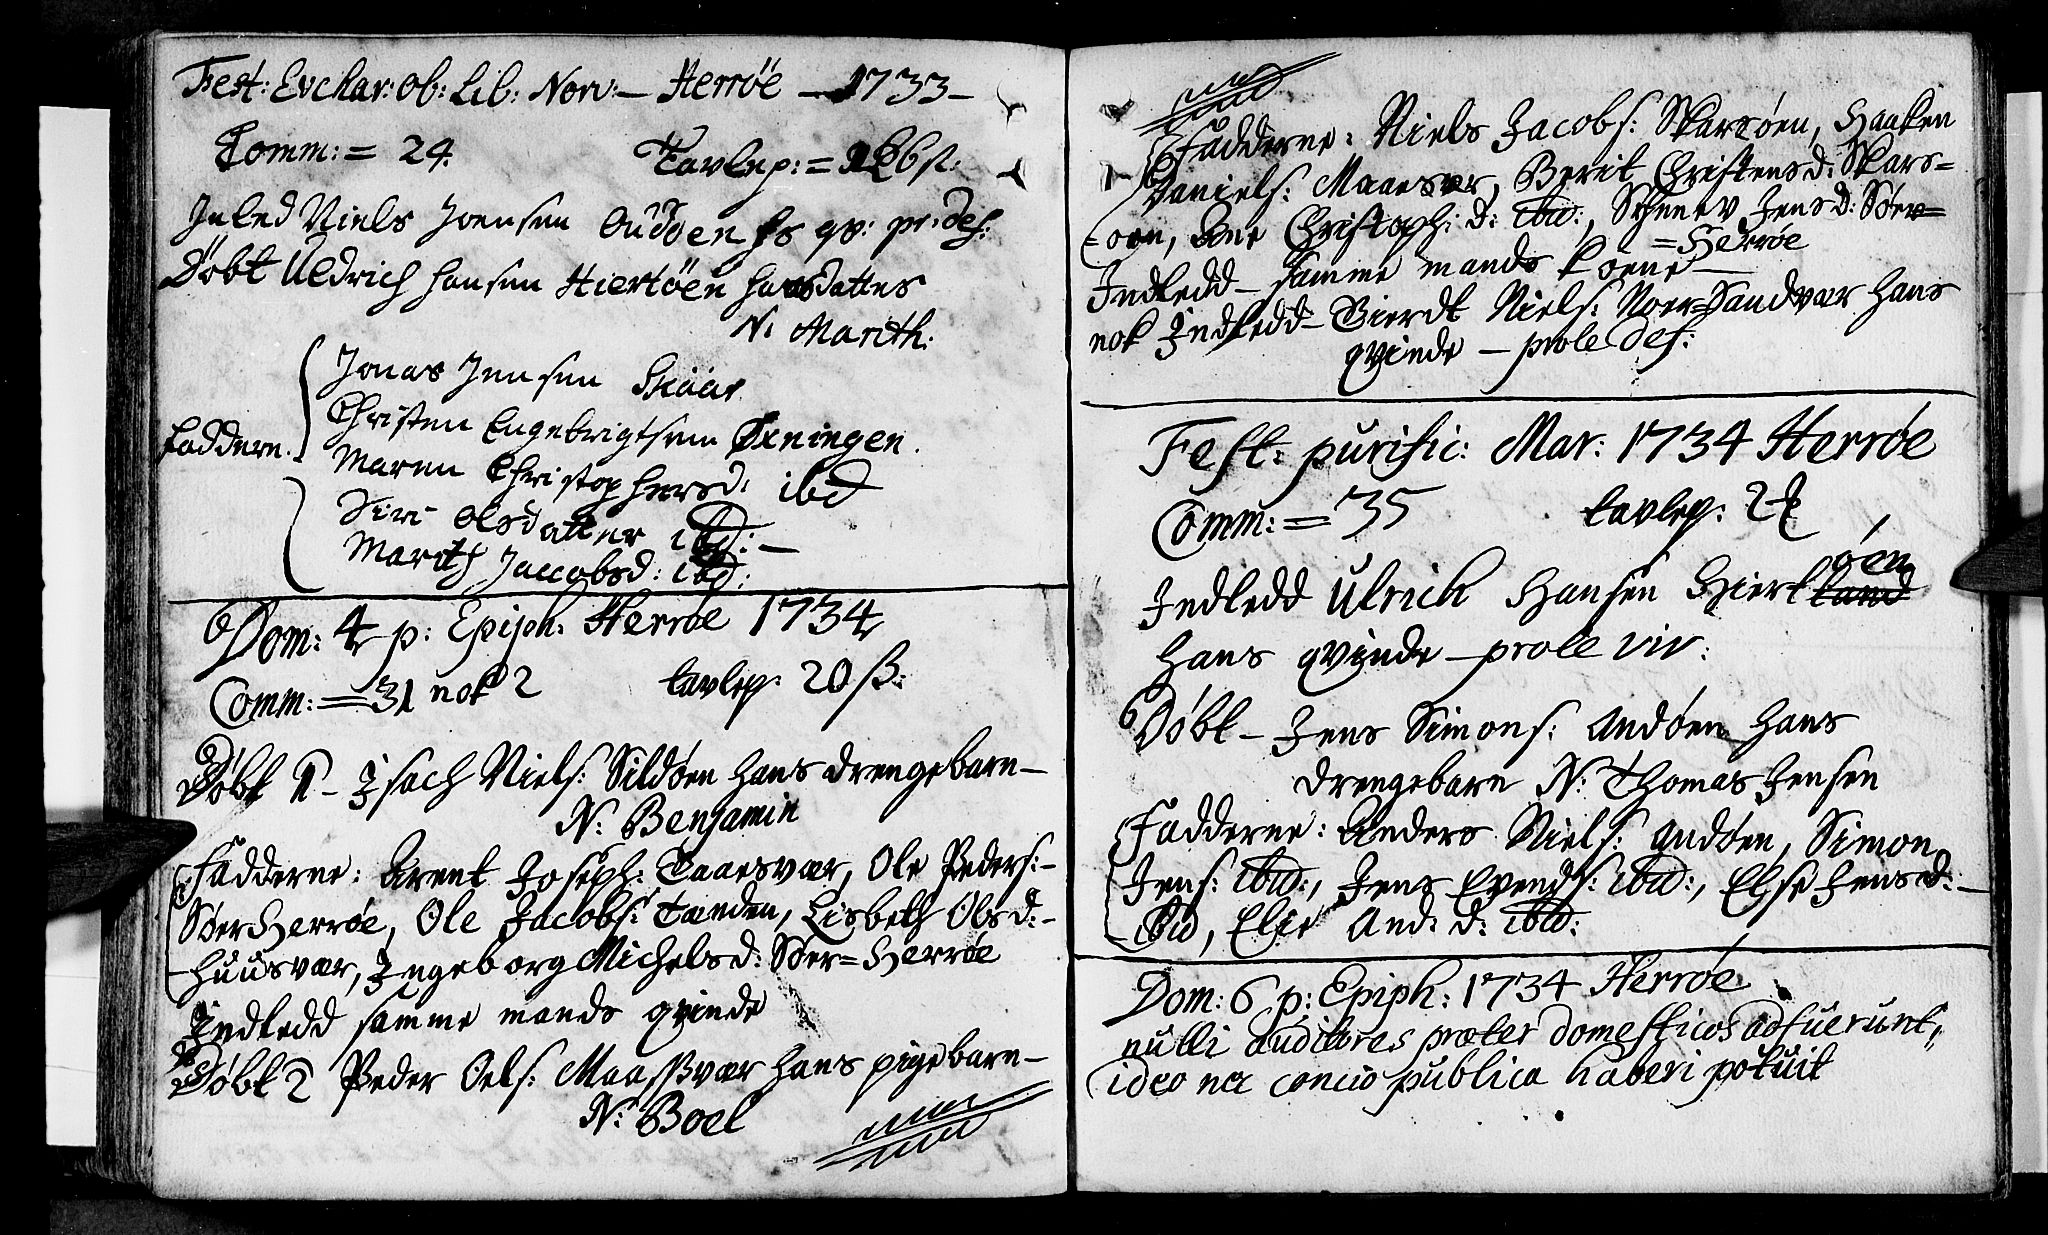 Fest: Evchar: Ob: Lib: Norv: — Herröe — 1733 —
Comm: = 24. Tavlep: =
Inled Niels Joensen gv: pr: def:
Döbt Uldrich Hansen Hiertöen hans datter
N. Marith:
Jonas Jensen Skaar
Christen Engebrigtsen Öxningen.
Faddern. Maren Christophersd: ibd
Siri Olsdatter ibd: —
Marith Jaccobsd: ibd:
Dom: 4 p: Epiph: Herröe 1734
Comm: = 31 nok 2 tavlep: 20 ß:
Döbt 1 - Isach Niels: Sildöen hans drengebarn —
N: Benjamin
Fadderne: Arent Joseph: Taaesvær, Ole Peders: -
SörHerröe, Ole Jacobs: Tænden, Lisbeth Olsd: -
- Huusvær, Ingeborg Michelsd: Söer=Herröe
Indledd samme mands qvinde
Döbt 2 Peder Oels: Maasvær hans pigebarn —
N: Boel
Fadderne: Niels Jacobs: Skarsöen, Haaken
Daniels: Maaesvær, Berit Christensd: Skars=
- öen, Ane Christoph: d: ibid:, Jensd: Söer=
=Herröe
Indledd — samme mands koene —
nok Indledd — Sierdt Niels: Noer=Sandvær hans
qvinde — prole def:
Fest: purific: Mar: 1734 Herröe
Comm: = 35 tavlep: 2
öen
Indledd Ulrich Hansen Hiertland
hans qvinde — prole viv:
Döbt — Jens Simons: Andöen hans
drengebarn N: Thomas Jensen
Fadderne: Anders Niels: Andöen, Simon
Jens: ibid:, Jens Evends: ibid:, Else Hensd: -
ibid, Elie And: d: ibid:
Dom: 6 p: Epiph: 1734 Herröe
nulli auditores præter domesticos adfuerunt,
ideo nec concio publica haberi potuit